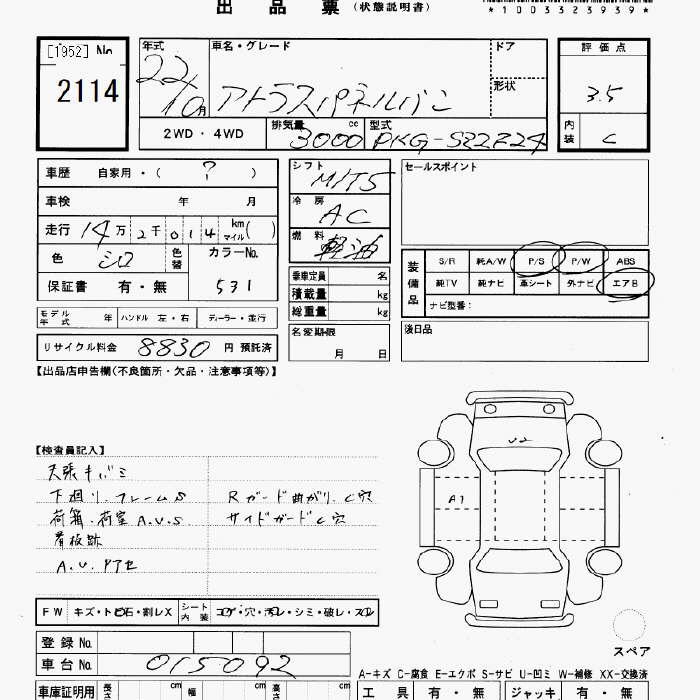 出品票（状態説明書）
*1003323939*
[1952] No
2114
年式
22/10月
車名・グレード
アトラスパネルバン
ドア
形状
評価点
3.5
内装
C
2WD・4WD
排気量
3000 cc
型式
PKG-SZ2F24
車歴 自家用・( ? )
車検 年 月
走行 14万2千014 km マイル( )
色 シロ 色替
カラーNo.
531
保証書 有・無
シフト
MT5
冷房
AC
燃料
軽油
乗車定員 名
積載量 kg
総重量 kg
名変期限
月 日
セールスポイント
装備品
S/R 純A/W P/S P/W ABS
純TV 純ナビ 革シート 外ナビ エアB
ナビ型番：
後日品
モデル年式 年 ハンドル 左・右 ディーラー・並行
リサイクル料金 8830 円 預託済
【出品店申告欄(不良箇所・欠品・注意事項等)】
【検査員記入】
天張キバミ
下廻り、フレームS Rガード曲がり、C穴
荷箱、荷室A.U.S サイドガードC穴
看板跡
A.U.Pアセ
U2
A1
FW キズ・トビ石・割レX シート内装 コゲ・穴・汚レ・シミ・破レ・スレ
スペア
登録No.
車台No. 015092
A-キズ C-腐食 E-エクボ S-サビ U-凹ミ W-補修 XX-交換済
車庫証明用 長さ cm 幅 cm 高さ cm
工具 有・無 ジャッキ 有・無